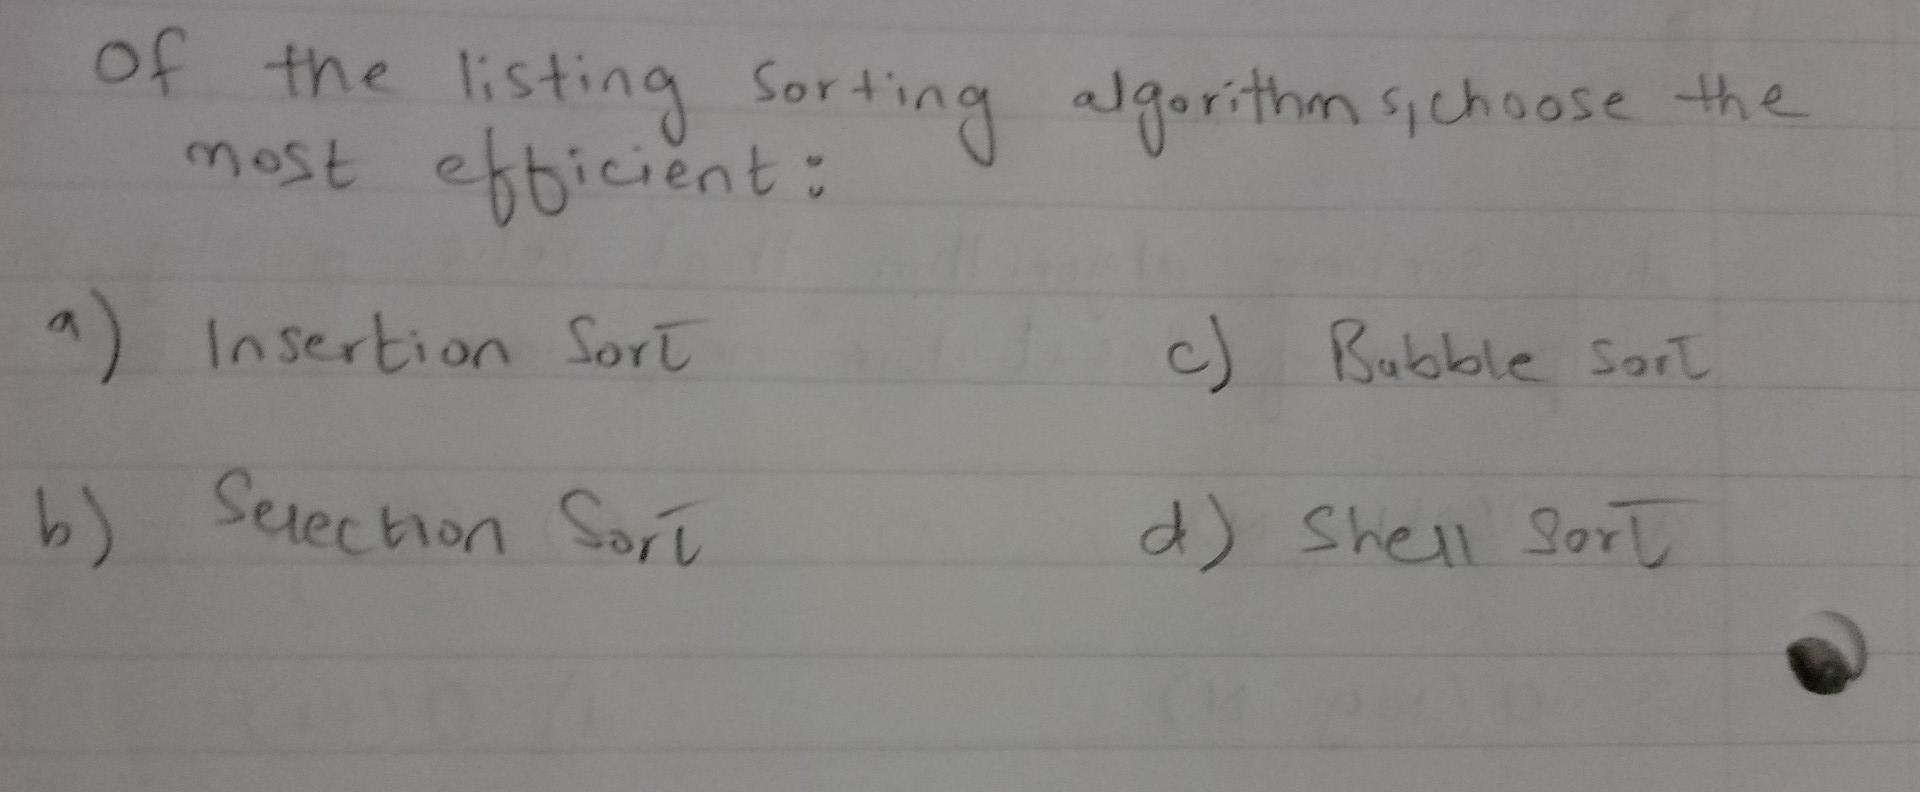 Of the listing sorting algorithms, choose the
most efficient:
a) Insertion Sort
c) Bubble Sort
b) Selection Sort
d) Shell Sort